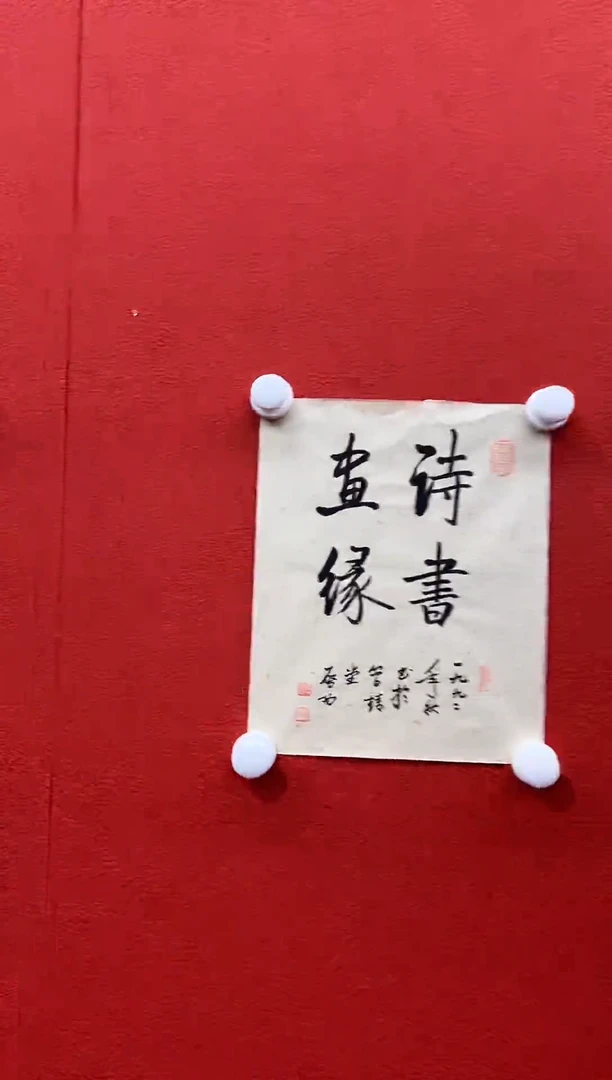 诗書
画缘
一九九二
年秋
书於
堂
启功